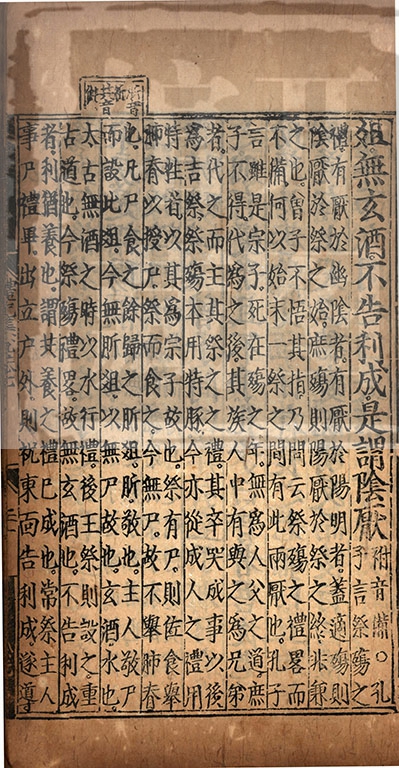 俎無玄酒不告利成是謂陰厭附音備○孔子言祭殤之
禮有厭於幽陰者有厭於陽明者蓋適殤則
陰厭於祭之始庶殤則陽厭於祭之終非兼
之也曾子不悟其指乃問云祭殤之禮畧而
不備何以始末一祭之間有此兩厭也孔子
言雖是宗子死在殤之年無爲人父之道庶
子不得代爲之後其族人中有與之爲兄弟
者代之而主其祭之之禮其卒哭成事以後
爲吉祭祭殤本用特豚今亦從成人之禮用
特牲者以其爲宗子故也祭有尸則佐食舉
肺脊以授尸祭而食之今無尸故不舉肺脊
也凡尸食之餘歸之肵俎肵敬也主人敬尸
而設此俎今無肵俎以無尸故也玄酒水也
太古無酒之時以水行禮後王祭則設之重
古道也今祭殤禮畧故無玄酒也不告利成
者利猶養也謂共養之禮已成也常祭主人
事尸禮畢出立戶外則祝東面告利成遂導